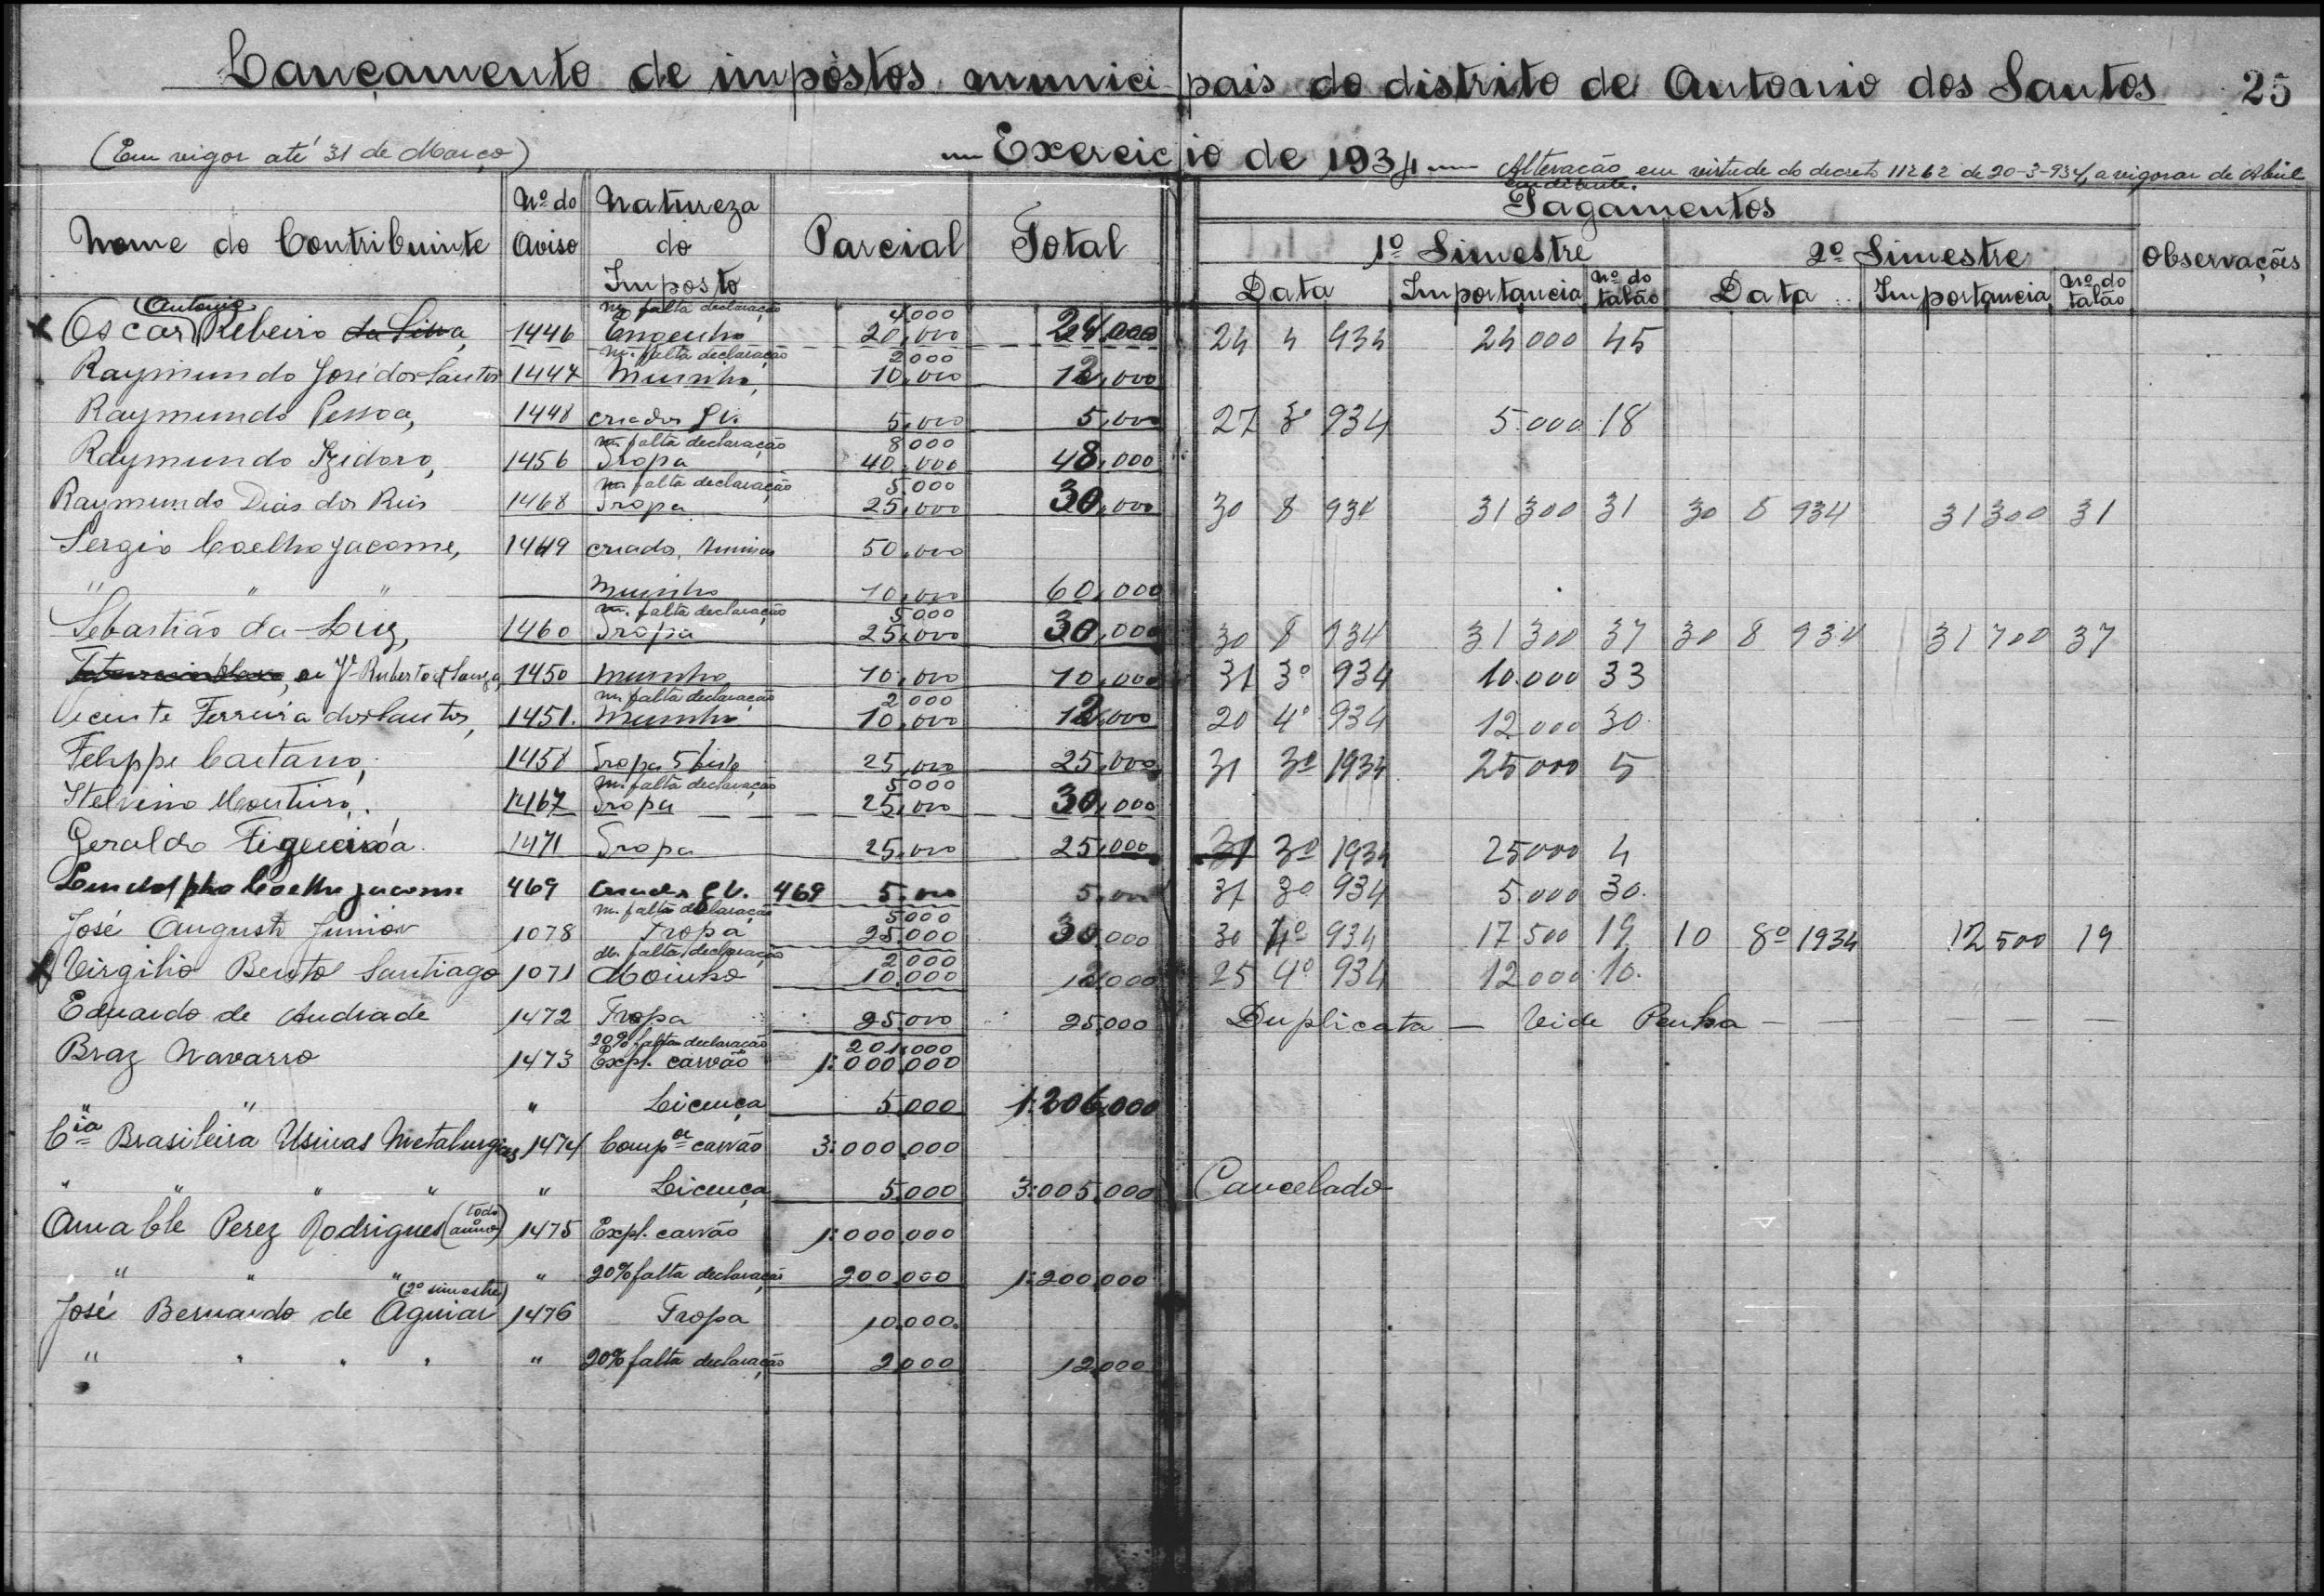 Lançamento de impóstos municipais do distrito de Antonio dos Santos 25
(Em vigor até 31 de Março) Exercicio de 1934 Alteração em virtude do decreto 11262 de 20-3-934, a vigorar de Abril em diante.
Pagamentos
Nome do Contribuinte Nº do Aviso Natureza do Imposto Parcial Total 1º Simestre 2º Simestre Observações
Data Importancia Nº do talão Data Importancia Nº do talão
Antonio m. falta declaração 4000
Oscar Ribeiro da Silva 1446 Engenho 20,000 24,000 24 4 934 24 000 45
m. falta declaração 2000
Raymundo José dos Santos 1447 Muinho, 10,000 12,000
Raymundo Pessoa, 1448 criador 5,000 5,000 27 3º 934 5.000 18
m. falta declaração 8000
Raymundo Izidoro, 1456 Tropa 40,000 48,000
m. falta declaração 5000
Raymundo Dias dos Reis 1468 Tropa 25,000 30,000 30 8 934 31 300 31 30 8 934 31 300 31
Sergio Coelho Jacome, 1449 criador, 50,000
" " " Muinho 10,000 60,000
m. falta declaração 5000
Sebastião da Luz, 1460 Tropa 25,000 30,000 30 8 934 31 300 37 30 8 934 31 700 37
1450 Muinho 10,000 10,000 31 3º 934 10.000 33
m. falta declaração 2000
Vicente Ferreira dos Santos, 1451. Muinho 10,000 12,000 20 4º 934 12.000 30.
Felippe Caetano, 1458 Tropa 5 25,000 25,000 31 3º 1934 25000 5
m. falta declaração 5000
Itelvino Monteiro, 1467 Tropa 25,000 30,000
Geraldo 1471 Tropa 25,000 25,000 31 3º 1934 25000 4
Lindolpho Coelho Jacome 469 criador 469 5,000 5,000 31 3º 934 5.000 30.
m. falta declaração 5000
José Augusto Junior 1078 Tropa 25.000 30,000 30 4º 934 17 500 19 10 8º 1934 12 500 19
m. falta declaração 2000
Virgilio Bento Santiago 1071 Moinho 10.000 12,000 25 4º 934 12 000 10.
Eduardo de Andrade 1472 Tropa 25,000 25,000 Duplicata — Vide Penha — — — — —
20% falta declaração 201,000
Braz Navarro 1473 Expl. carvão 1:000,000
" " " Licença 5,000 1:206,000
Cia Brasileira Usinas Metalurgicas 1474 Compor carvão 3:000,000
" " " " " Licença 5,000 3:005,000 Cancelado
Amable Perez Rodrigues (todo anno) 1475 Expl. carvão 1:000,000
" " " " 20% falta declaração 200,000 1:200,000
(2º simestre)
José Bernardo de Aguiar 1476 Tropa 10,000.
" " " " " 20% falta declaração 2,000 12,000